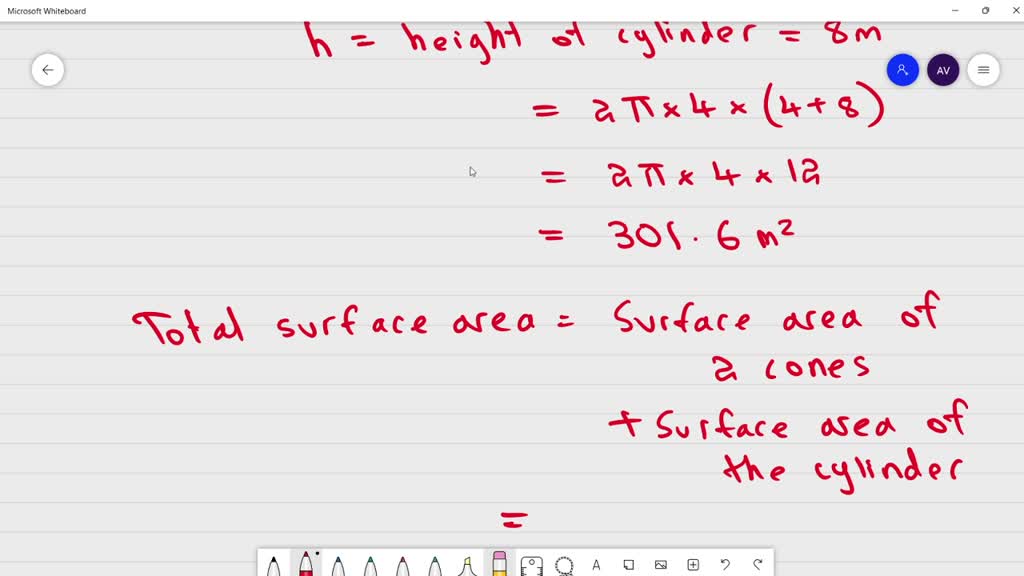 Microsoft Whiteboard
h = height of cylinder = 8m
AV
= 2π × 4 × (4+8)
= 2π × 4 × 12
= 301.6 m²
Total surface area = Surface area of
2 cones
+ Surface area of
the cylinder
=
A